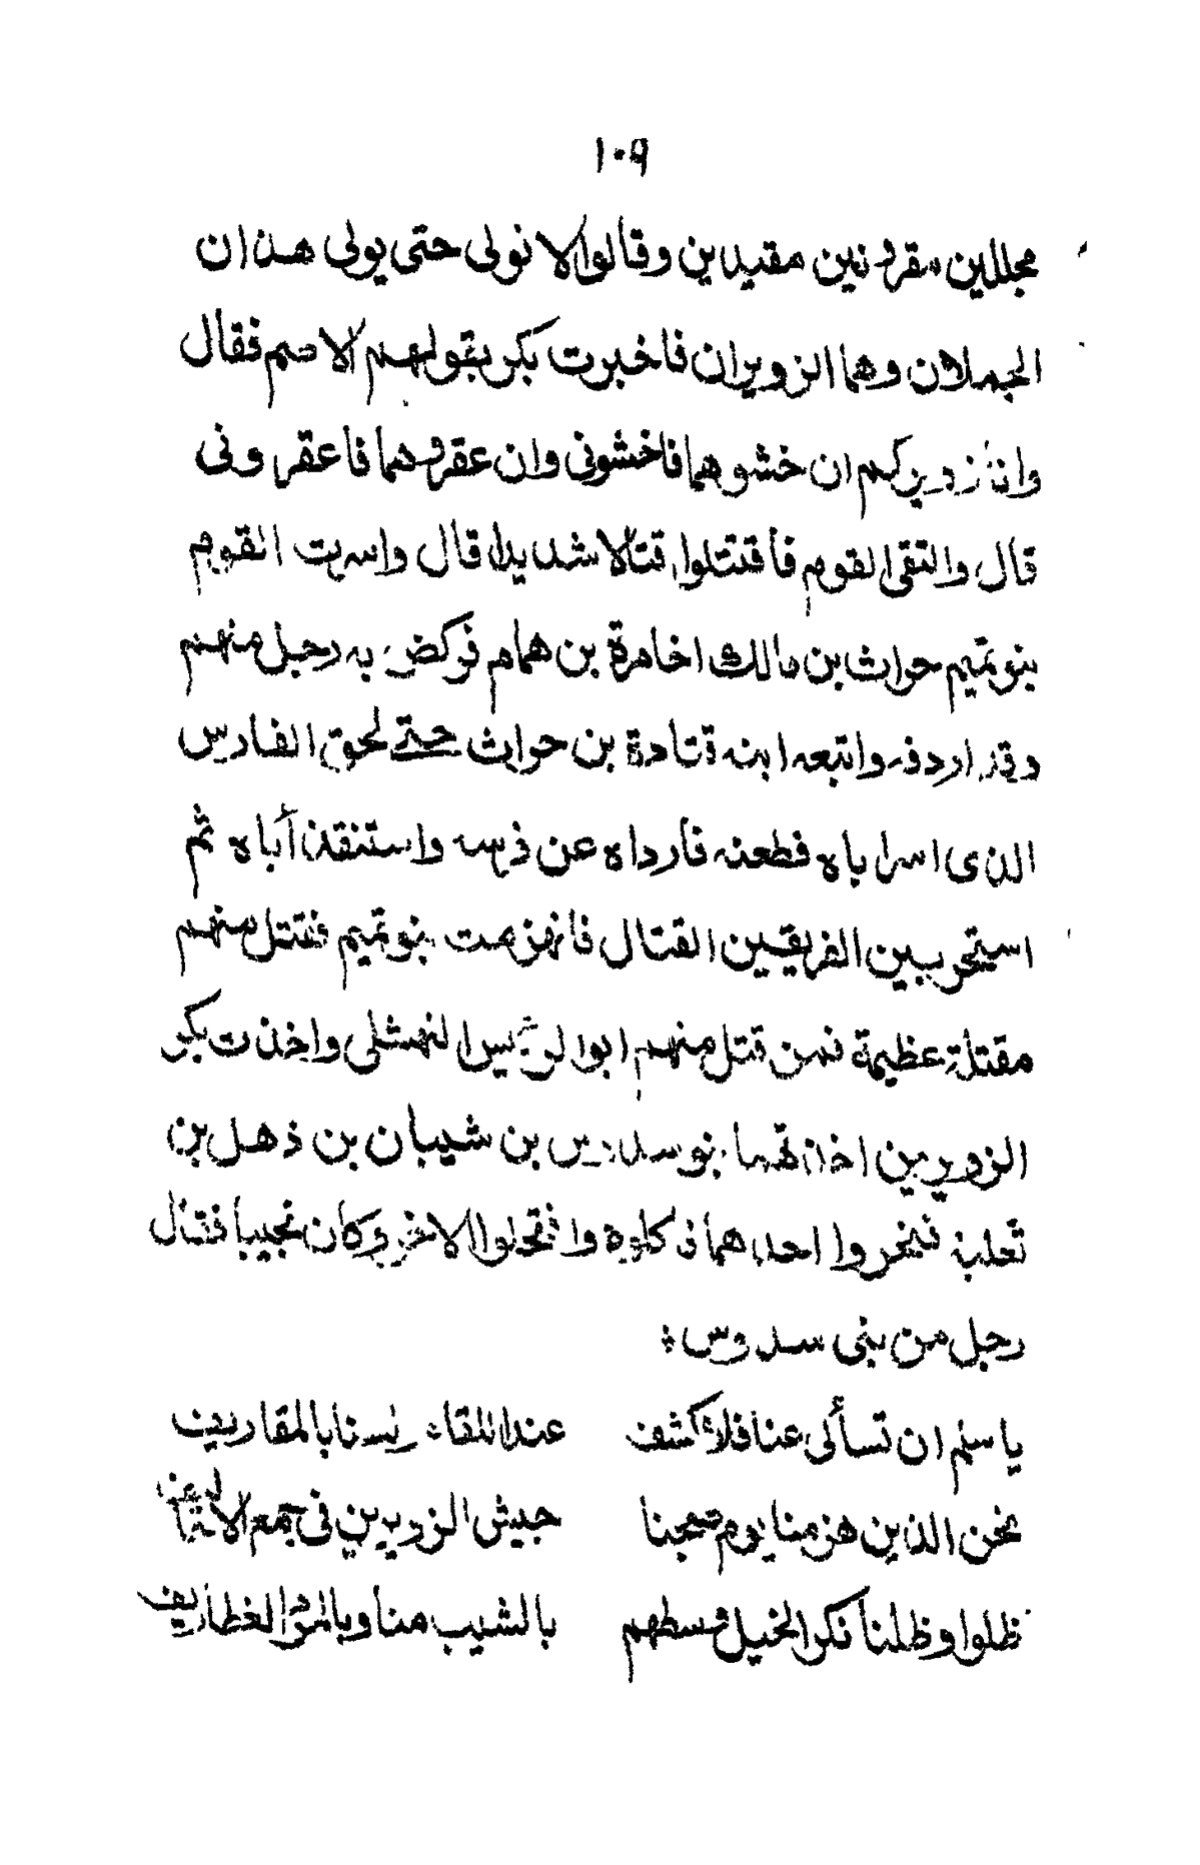 ١٠٩
مجللين مقرونين مقيدين وقالوا لا نولى حتى يولى هذان
الجملان وهما الزويران فاخبرت بكر بقولهم الاصم فقال
وانا زويركم ان خشوهما فاخشونى وان عقروهما فاعقرونى
قال والتقى القوم فاقتتلوا قتالا شديدا قال واسرت القوم
بنو تميم حراث بن مالك اخامرة بن همام فركض به رجل منهم
وقد اردفه واتبعه ابنه قتادة بن حراث حتى لحق الفارس
الذى اسر اباه فطعنه فارداه عن فرسه واستنقذ أباه ثم
استحر بين الفريقين القتال فانهزمت بنو تميم فقتل منهم
مقتلة عظيمة فممن قتل منهم ابو الرئيس النهشلى واخذت بكر
الزويرين اخذتهما بنو سدوس بن شيبان بن ذهل بن
ثعلبة فنحروا احدهما فاكلوه وافتحلوا الاخر وكان نجيبا فقال
رجل من بنى سدوس :
يا سلم ان تسألى عنا فلا كشف عند اللقاء لسنا بالمقاريف
نحن الذين هزمنا يوم صبحنا جيش الزويرين فى جمع الاحاليف
ظلوا وظلنا نكر الخيل وسطهم بالشيب منا وبالمرد الغطاريف